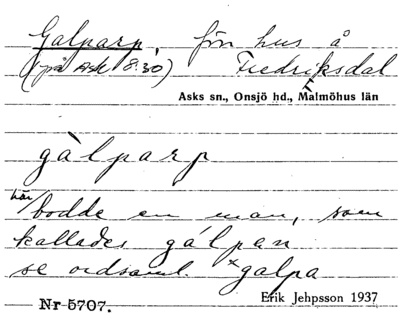 Galparp, förr hus å
(på Ask 8:30) Fredriksdal
Asks sn., Onsjö hd., Malmöhus län
F
gàlparp
här bodde en man, som
kallades gálpan
se ordsaml. *galpa
Nr 5707. Erik Jehpsson 1937